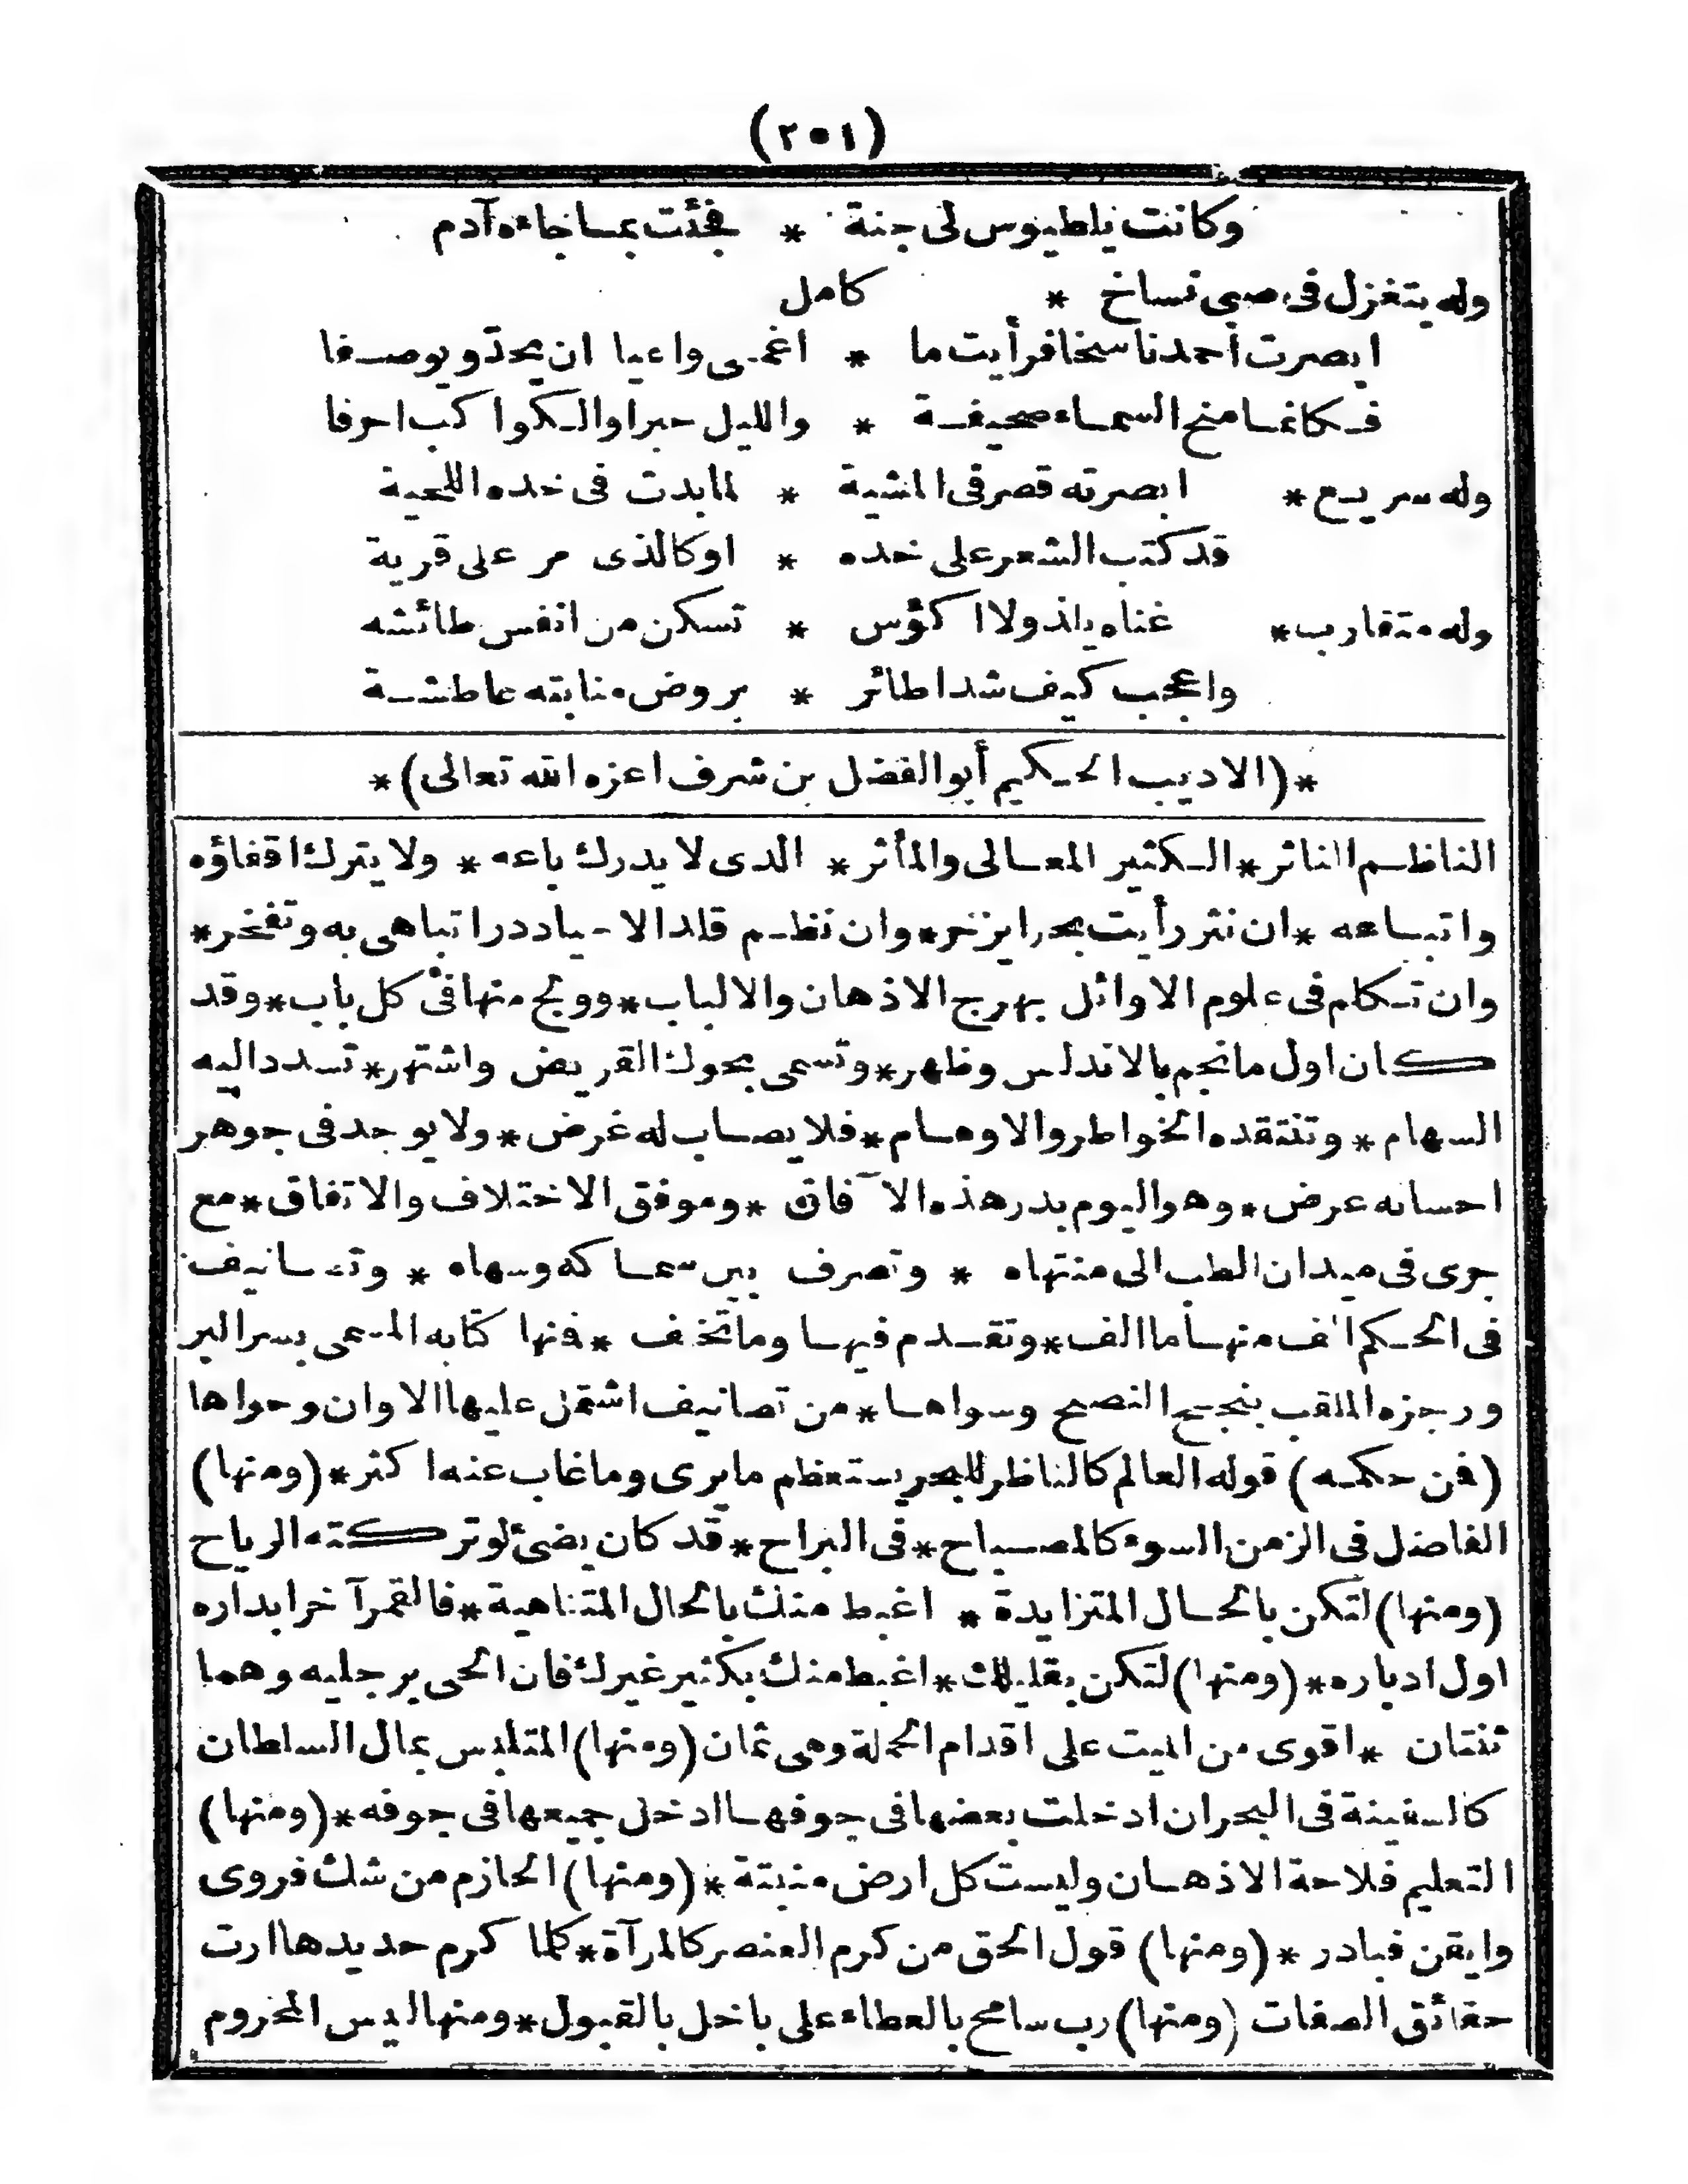 (٢٥١)
وكانت بلطيوس لى جنة * فجئت بما جاءه آدم
وله يتغزل فى صبى نساخ * كامل
ابصرت أحمد ناسخا فرأيت ما * اغمى واعيا ان يحدّ ويوصفا
فكانما منح السماء صحيفة * والليل حبرا والكواكب احرفا
وله سريع * ابصرته قصر فى المشية * لما بدت فى خده اللحية
قد كتب الشعر على خده * اوكالذى مر على قرية
وله متقارب * غناء يلذ ولا اكؤس * تسكن من انفس طائشه
واعجب كيف شدا طائر * بروض منابته عاطشة
*(الاديب الحكيم أبو الفضل بن شرف اعزه الله تعالى)*
الناظم الناثر * الكثير المعالى والمأثر * الدى لا يدرك باعه * ولا يترك اقفاؤه
واتباعه * ان نثر رأيت بحرا يزخر * وان نظم قلد الاجياد درا تباهى به وتفخر *
وان تكلم فى علوم الاوائل بهرج الاذهان والالباب * وولج منها فى كل باب * وقد
كان اول ما نجم بالاندلس وظهر * وتسمى بحوك القريض واشتهر * تسدد اليه
السهام * وتنتقده الخواطر والاوهام * فلا يصاب له غرض * ولا يوجد فى جوهر
احسانه عرض * وهو اليوم بدر هذه الآفاق * وموفق الاختلاف والاتفاق * مع
جرى فى ميدان الطب الى منتهاه * وتصرف بين سماكه وسهاه * وتصانيف
فى الحكم الف منها ما الف * وتقدم فيها وما تخلف * فمنها كتابه المسمى بسر البر
ورجزه الملقب بنجح النصح وسواها * من تصانيف اشتمل عليها الاوان وحواها
(فمن حكمه) قوله العالم كالناظر للبحر يستعظم ما يرى وما غاب عنه اكثر * (ومنها)
الفاضل فى الزمن السوء كالمصباح * فى البراح * قد كان يضئ لو تركته الرياح
(ومنها) لتكن بالحال المتزايدة * اغبط منك بالحال المتناهية * فالقمر آخر ابداره
اول ادباره * (ومنها) لتكن بقليلك * اغبط منك بكثير غيرك فان الحى برجليه وهما
ثنتان * اقوى من الميت على اقدام الحملة وهى ثمان (ومنها) المتلبس بمال السلطان
كالسفينة فى البحر ان ادخلت بعضها فى جوفها ادخل جميعها فى جوفه * (ومنها)
التعليم فلاحة الاذهان وليست كل ارض منبتة * (ومنها) الحازم من شك فروى
وايقن فبادر * (ومنها) قول الحق من كرم العنصر كالمرآة * كلما كرم حديدها ارت
حقائق الصفات (ومنها) رب سامح بالعطاء على باخل بالقبول * ومنها ليس المحروم